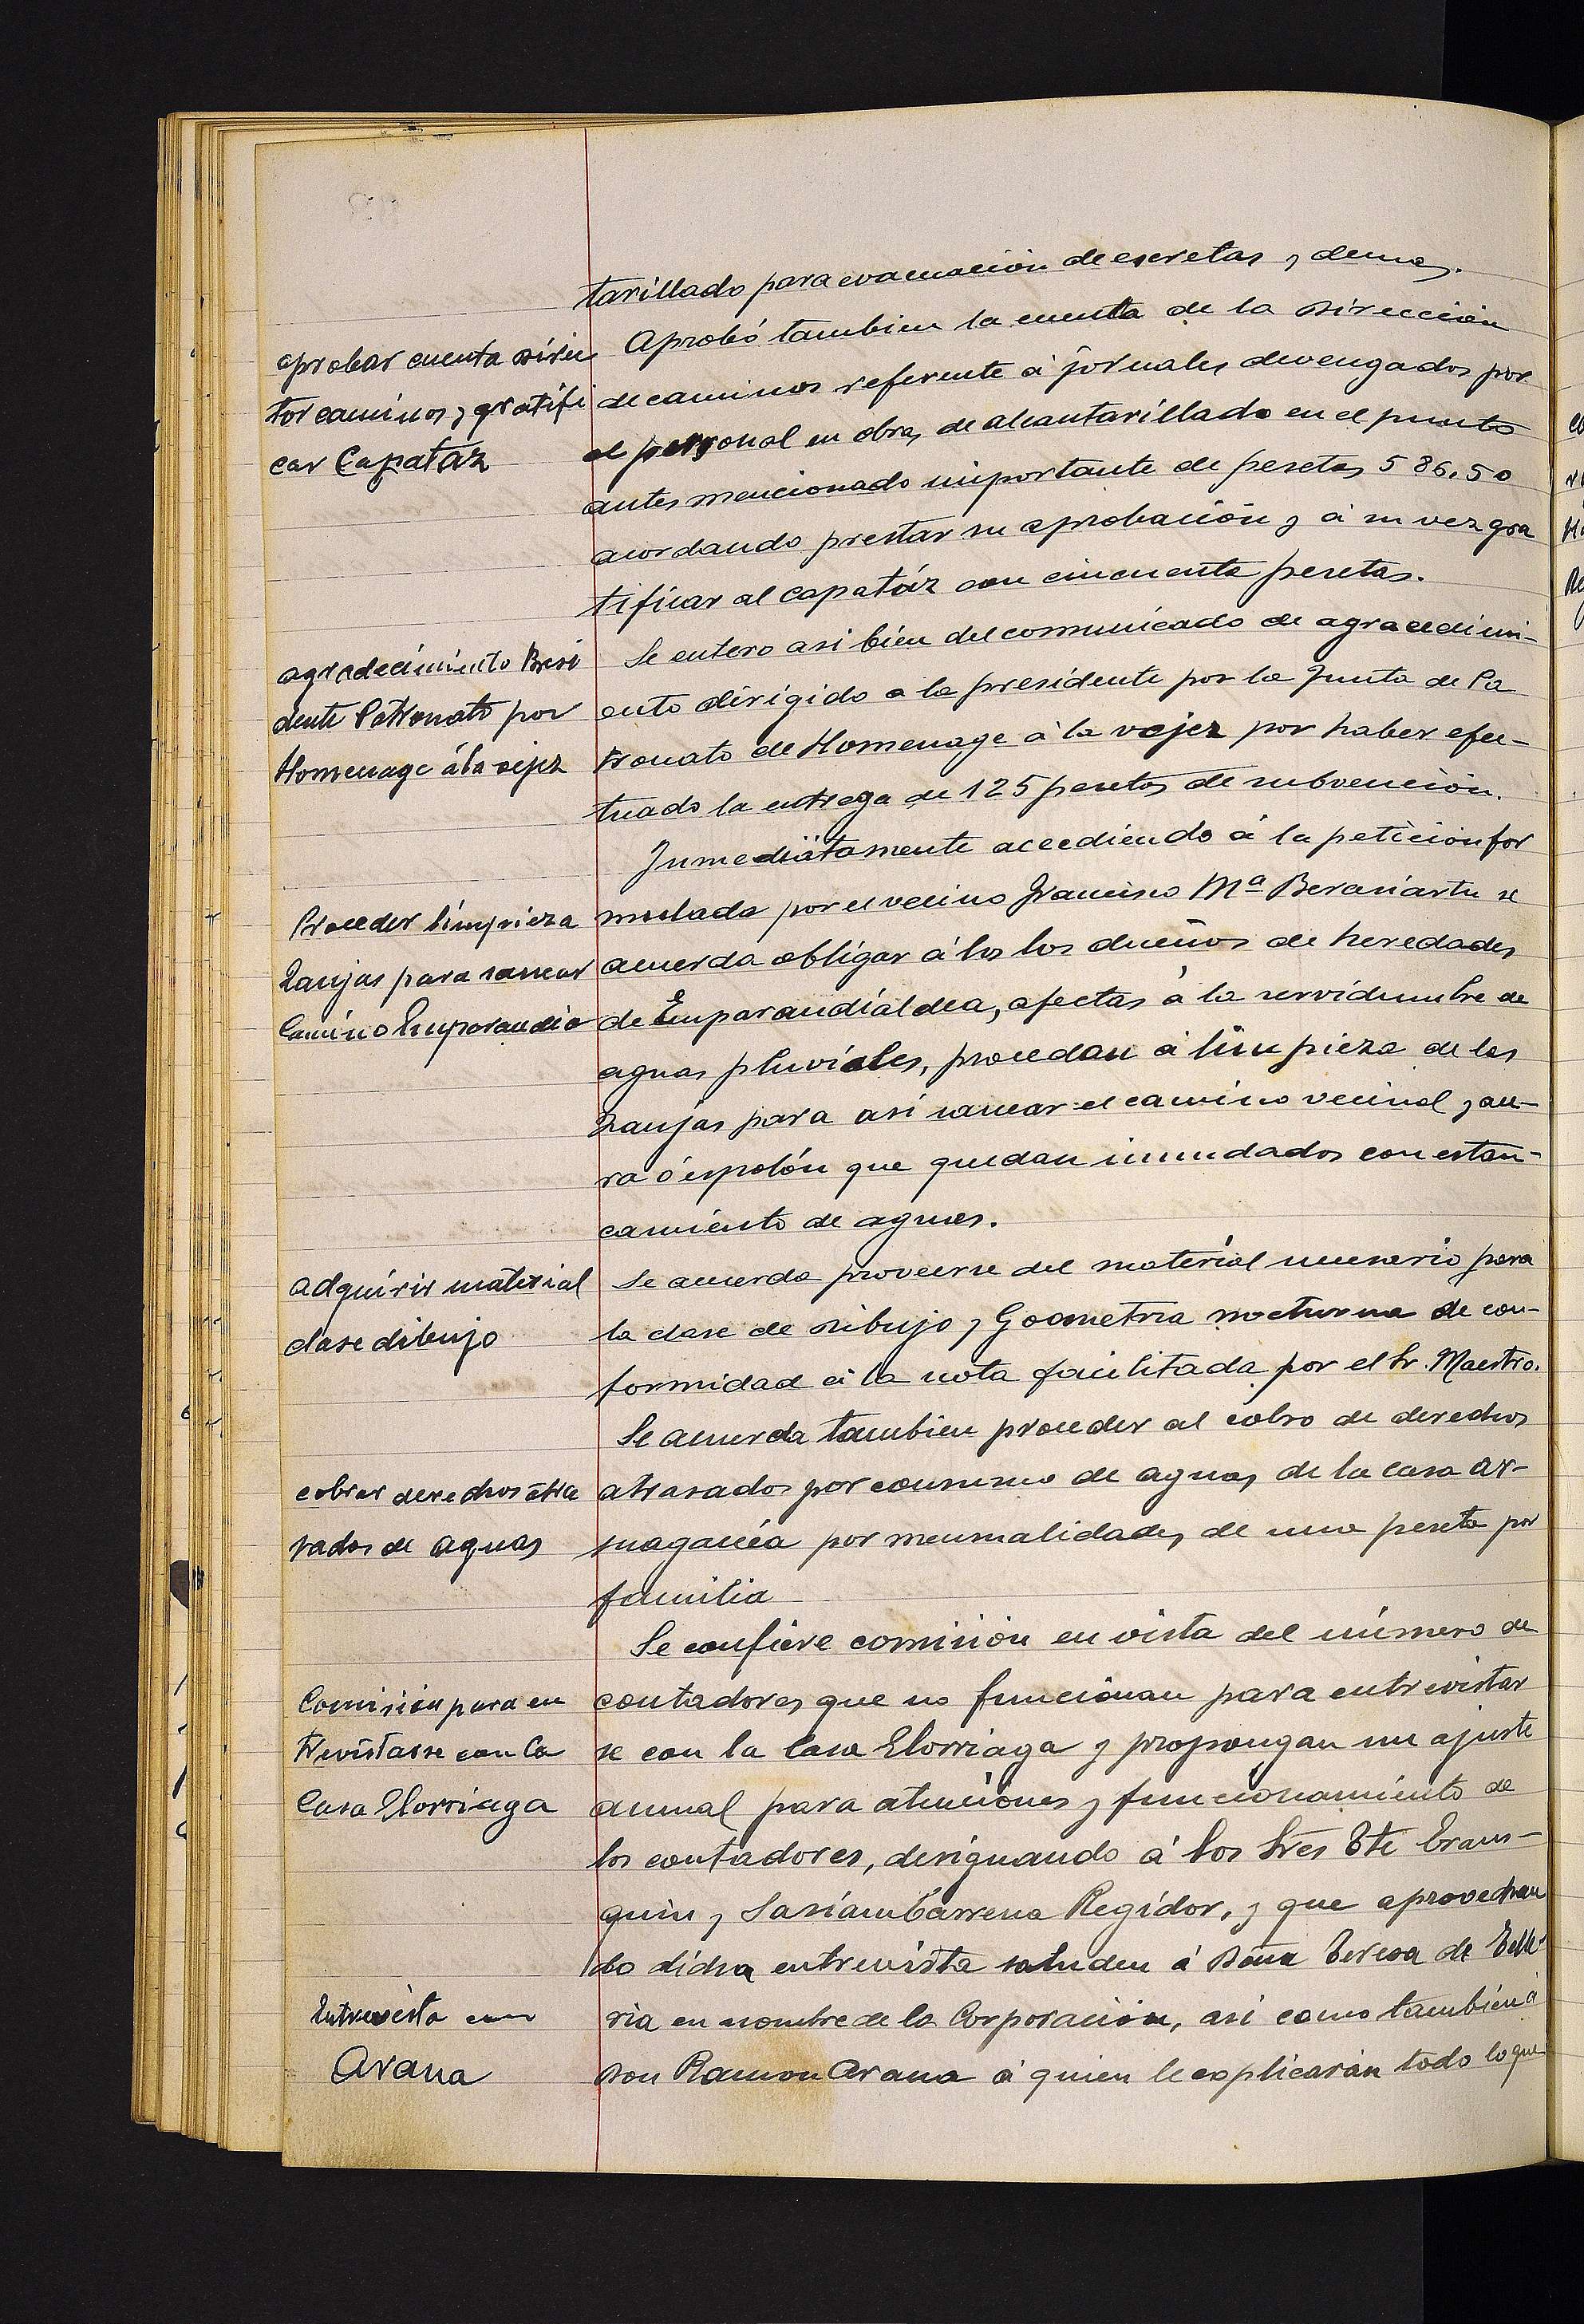 tarillado para evacuación de escretas y demas.
aprobar cuenta direc
tor caminos y gratifi
car Capatáz
Aprobó tambien la cuenta de la Dirección
de caminos referente á jornales devengados por
el personal en obras de alcantarillado en el punto
antes mencionado importante de pesetas 586.50
acordando prestar su aprobación y á su vez gra
tificar al capatáz con cincuenta pesetas.
agradecimiento Presi
dente Patronato por
Homenage á la vejez
Se entero asi bien del comunicado de agradecimi-
ento dirigido a la presidente por la Junta de Pa
tronato de Homenage á la vejez por haber efec-
tuado la entrega de 125 pesetas de subvención.
Proceder limpieza
Zanjas para sanear
Camino Emparandia
Inmediatamente accediendo á la petición for
mulada por el vecino Francisco Mª Berasiartu se
acuerda obligar á los los dueños de heredades
de Emparandialdea, afectas á la servidumbre de
aguas pluviales, procedan á limpieza de las
zanjas para asi sanear el camino vecinal y au-
ra ó espolón que quedan inundados con estan-
camiento de aguas.
adquirir material
clase dibujo
Se acuerda proveerse del material necesario para
la clase de Dibujo y Geometria nocturna de con-
formidad á la nota facilitada por el Sr. Maestro.
cobrar derechos atra
sados de aguas
Se acuerda tambien proceder al cobro de derechos
atrasados por consumo de aguas de la casa Ar-
suagauea por mensualidades de una peseta por
familia
Comisión para en
trevistarse con la
Casa Elorriaga
Se confiere comisión en vista del número de
contadores que no funcionan para entrevistar
se con la Casa Elorriaga y propongan un ajuste
anual para atenciones y funcionamiento de
los contadores, designando á los Sres Tte Eraus-
quin y Sasiambarrena Regidor, y que aprovechan
do dicha entrevista saluden á Doña Teresa de Telle
ria en nombre de la Corporación, asi como tambien á
Entrevista con
Arana
Don Ramon Arana á quien le explicarán todo lo que